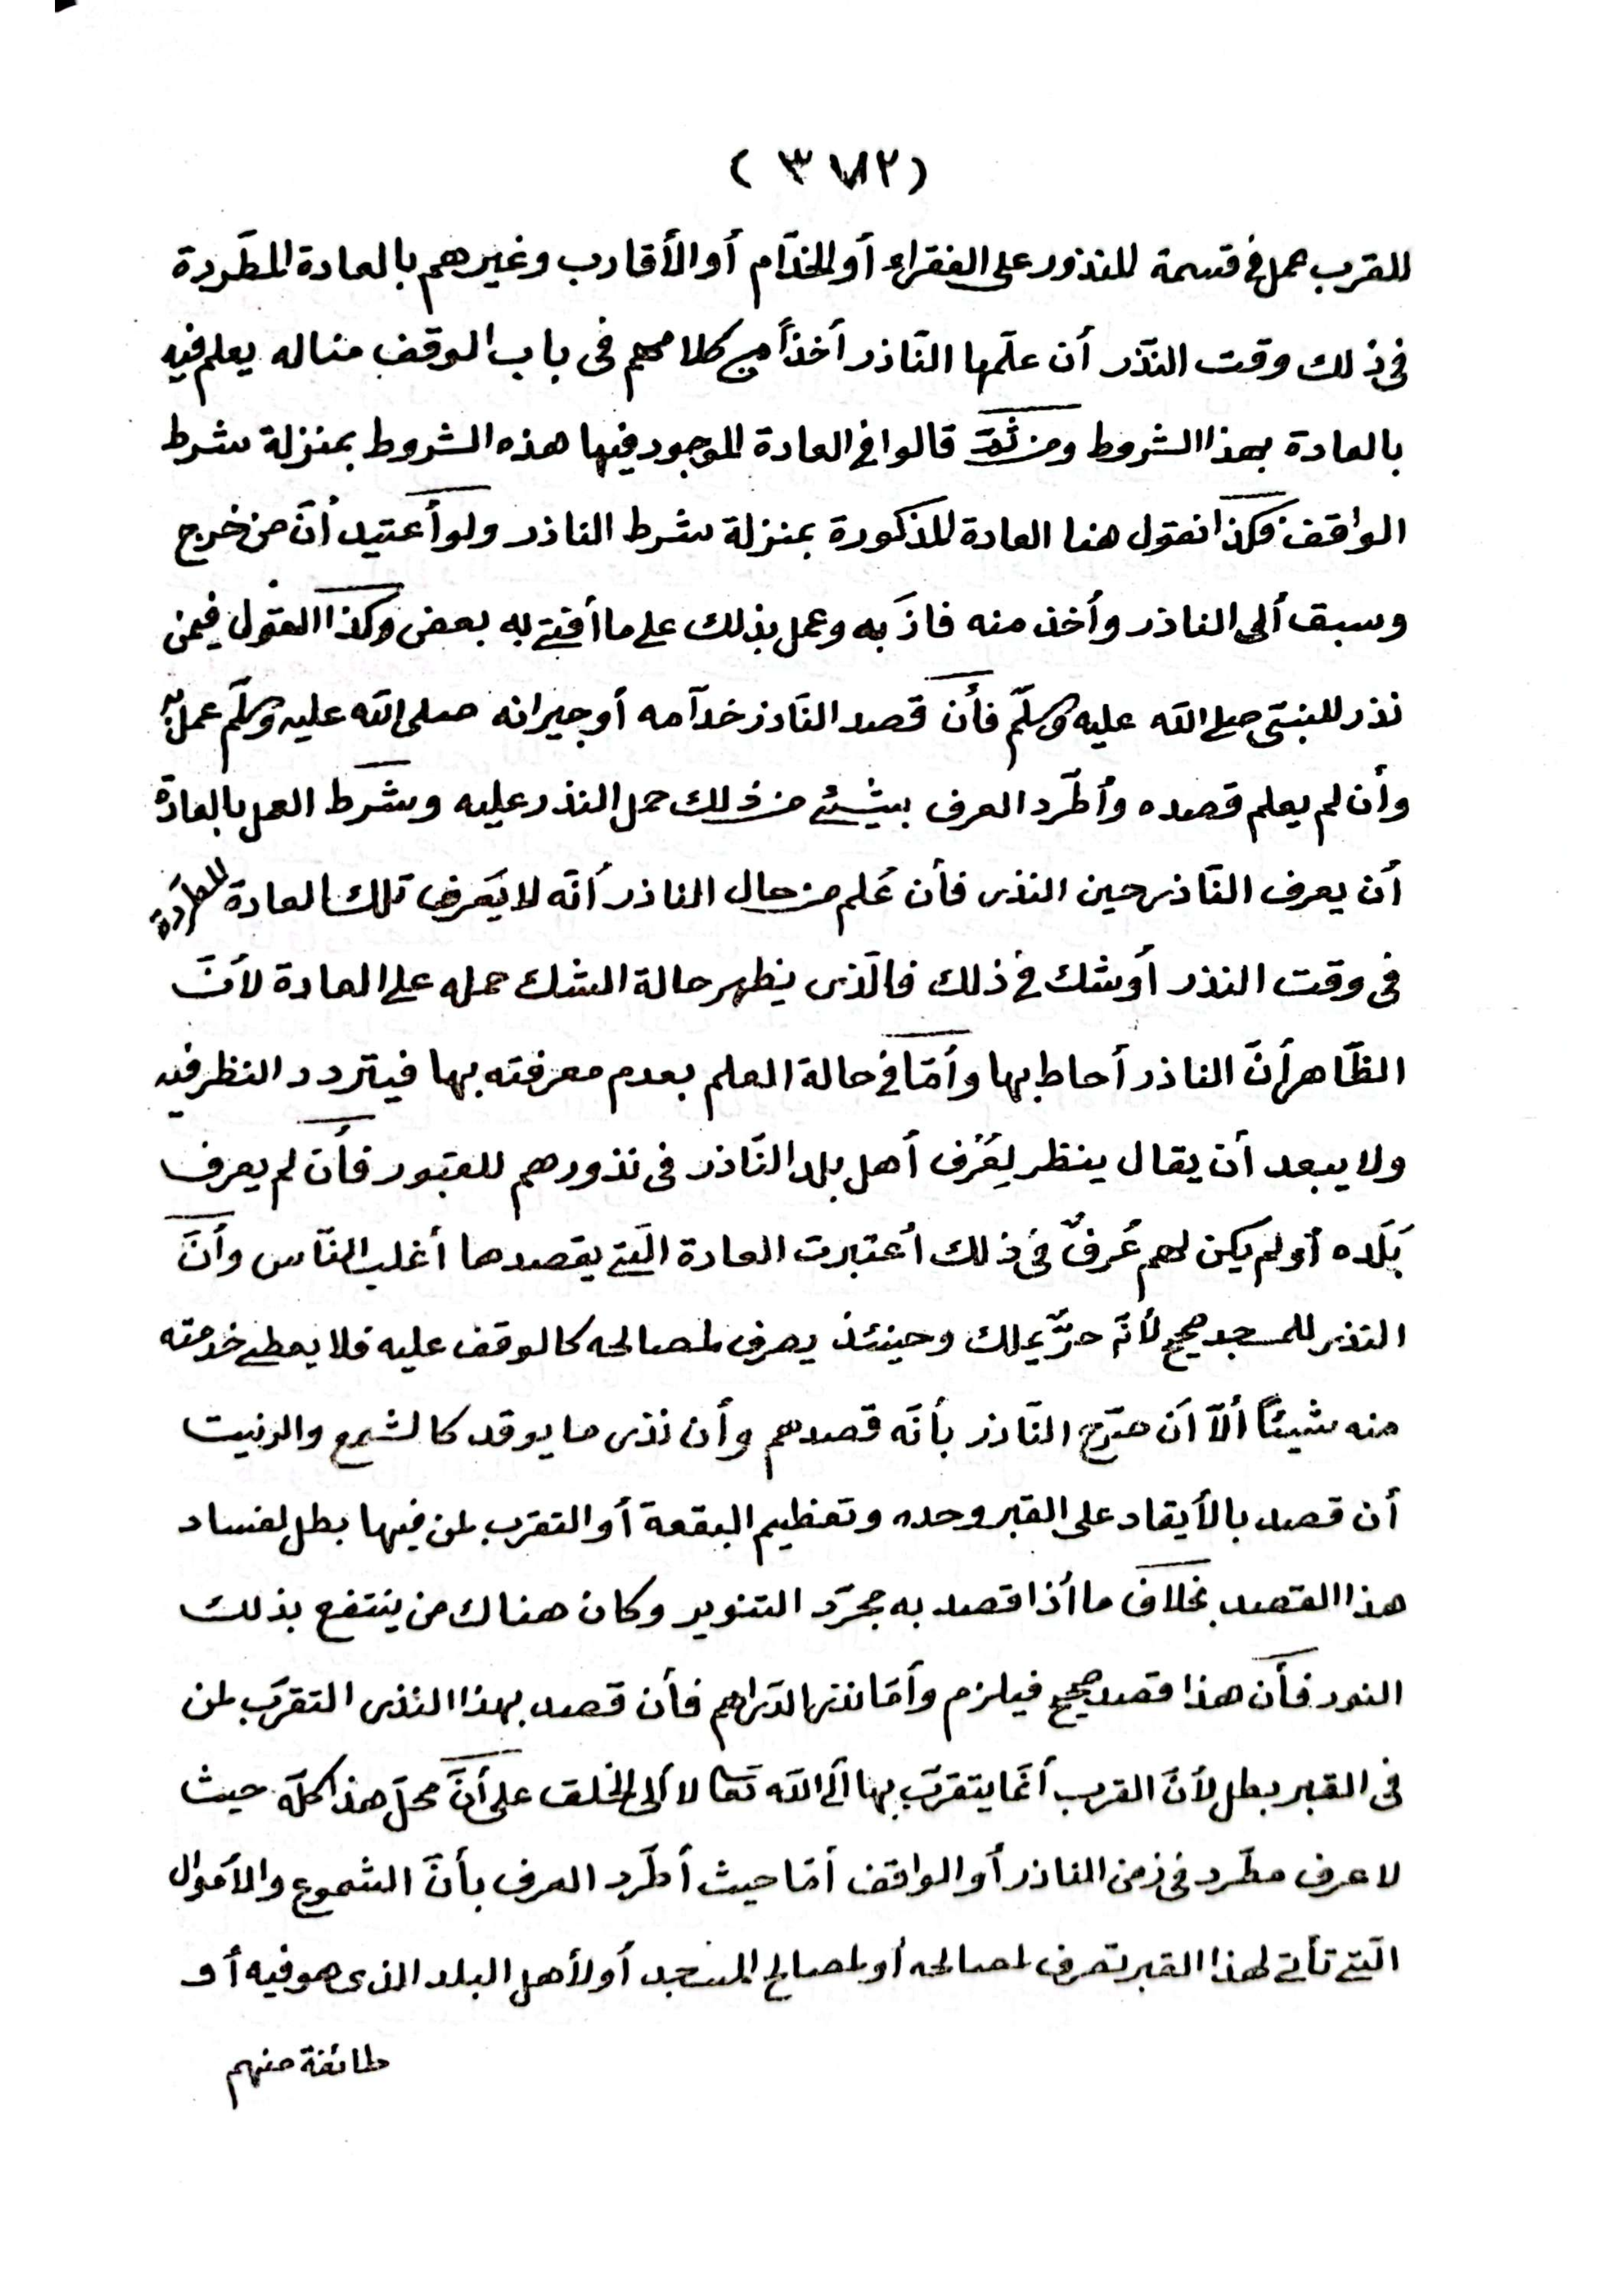 ( ٣٧٨٢ )
للقرب عمل فى قسمة المنذور على الفقراء أو الخدّام أو الأقارب وغيرهم بالعادة المطّردة
فى ذلك وقت النّذر أن علمها النّاذر أخذاً من كلامهم فى باب الوقف مناله يعلم فيه
بالعادة بهذا الشروط ومن ثمّ قالوا فى العادة الموجود فيها هذه الشروط بمنزلة شرط
الواقف فكذا نقول هنا العادة المذكورة بمنزلة شرط الناذر ولو أعتيد أنّ من خرج
وسبق ألى الناذر وأخذ منه فاز به وعمل بذلك على ما أفتى به بعض وكذا القول فيمن
نذر للنبيّ صلى الله عليه وسلّم فأن قصد النّاذر خدّامه أو جيرانه صلى الله عليه وسلّم عمل به
وأن لم يعلم قصده وأطّرد العرف بشئ من ذلك حمل النذر عليه وشرط العمل بالعادة
أن يعرف النّاذر حين النذر فأن عُلم من حال الناذر أنّه لا يَعرف تلك العادة المطّردة
فى وقت النذر أو شك فى ذلك فالّذى يظهر حالة الشك حمله على العادة لأنّ
الظّاهر أنّ الناذر أحاط بها وأمّا فى حالة العلم بعدم معرفته بها فيتردد النظر فيه
ولا يبعد أن يقال ينظر لِعُرف أهل بلد النّاذر فى نذورهم للقبور فأن لم يعرف
بَلَده أو لم يكن لهم عُرفٌ فى ذلك أعتبرت العادة الّتى يقصدها أغلب النّاس وأنّ
النذر للمسجد صحيح لأنّه حرٌّ يملك وحينئذ يصرف لمصالحه كالوقف عليه فلا يعطى خدمته
منه شيئاً ألاّ أن صرّح النّاذر بأنّه قصدهم وأن نذر ما يوقد كالشمع والزيت
أن قصد بالأيقاد على القبر وحده وتعظيم البقعة أو التقرب لمن فيها بطل لفساد
هذا القصد بخلاف ما أذا قصد به مجرّد التنوير وكان هناك من ينتفع بذلك
النور فأن هذا قصد صحيح فيلزم وأمّا نذر الدّراهم فأن قصد بهذا النذر التقرّب لمن
فى القبر بطل لأنّ القرب أنّما يتقرّب بها ألى الله تعا لا ألى الخلق على أنّ محلّ هذا كلّه حيث
لا عرف مطّرد فى زمن الناذر أو الواقف أمّا حيث أطّرد العرف بأنّ الشموع والأموال
الّتى تأتى لهذا القبر تصرف لمصالحه أو لمصالح المسجد أو لأهل البلد الذى هو فيه أو
طائفة منهم